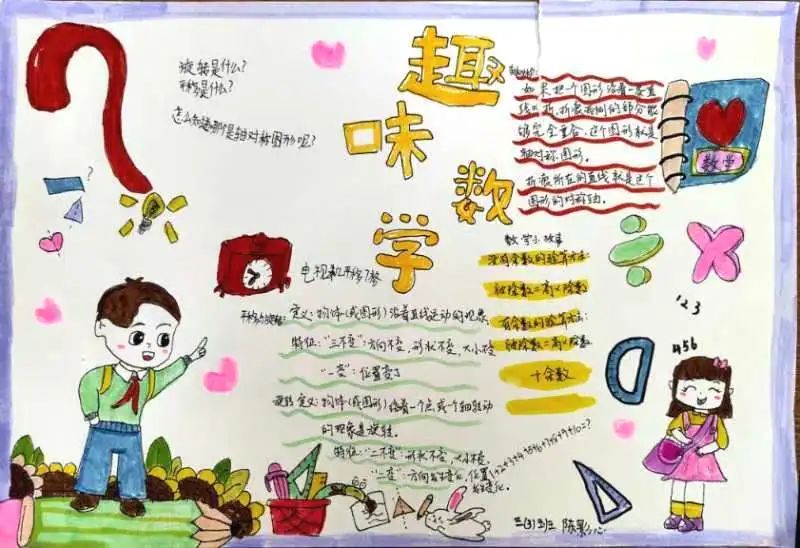 趣味数学
旋转是什么?
平移是什么?
怎么知道哪个是轴对称图形呢?
?
如果把一个图形沿着一条直
线对折,折痕两侧的部分能
够完全重合,这个图形就是
轴对称图形。
折痕所在的直线就是这个
图形的对称轴。
数学
数学小故事
没有余数的验算方法:
被除数=商×除数
有余数的验算方法:
被除数=商×除数
+余数
123
456
电视机平移7格
定义:物体(或图形)沿着直线运动的现象
特征:“三不变”:方向不变,形状不变,大小不变
“一变”:位置变了
旋转定义:物体(或图形)绕着一个点或一个轴转动
的现象是旋转。
特征:“二不变”:形状不变,大小不变,
“一变”:方向发生变化,位置
发生变化。
1+2+3+4+5+6+7+8+9+10=?
三(3)班 陈影